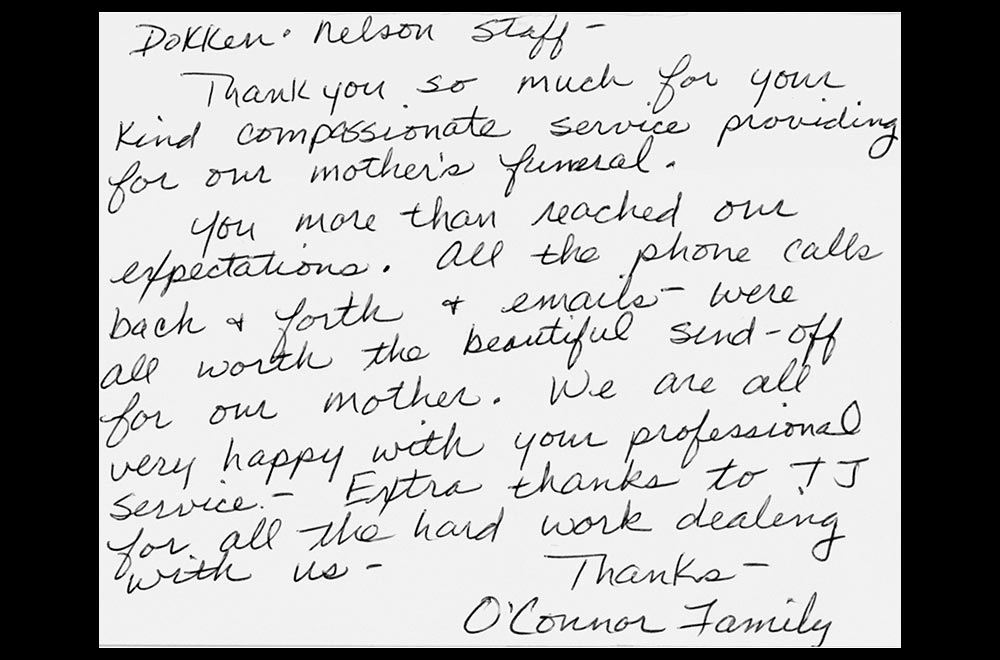 Dokken・Nelson Staff –
Thank you so much for your
kind compassionate service providing
for our mother's funeral.
You more than reached our
expectations. All the phone calls
back & forth & emails – were
all worth the beautiful send-off
for our mother. We are all
very happy with your professional
service. – Extra thanks to TJ
for all the hard work dealing
with us – Thanks –
O'Connor Family